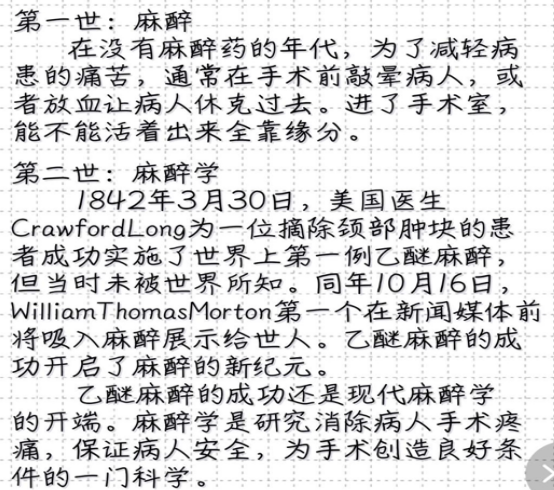 第一世：麻醉
在没有麻醉药的年代，为了减轻病
患的痛苦，通常在手术前敲晕病人，或
者放血让病人休克过去。进了手术室，
能不能活着出来全靠缘分。
第二世：麻醉学
1842年3月30日，美国医生
CrawfordLong为一位摘除颈部肿块的患
者成功实施了世界上第一例乙醚麻醉，
但当时未被世界所知。同年10月16日，
WilliamThomasMorton第一个在新闻媒体前
将吸入麻醉展示给世人。乙醚麻醉的成
功开启了麻醉的新纪元。
乙醚麻醉的成功还是现代麻醉学
的开端。麻醉学是研究消除病人手术疼
痛，保证病人安全，为手术创造良好条
件的一门科学。